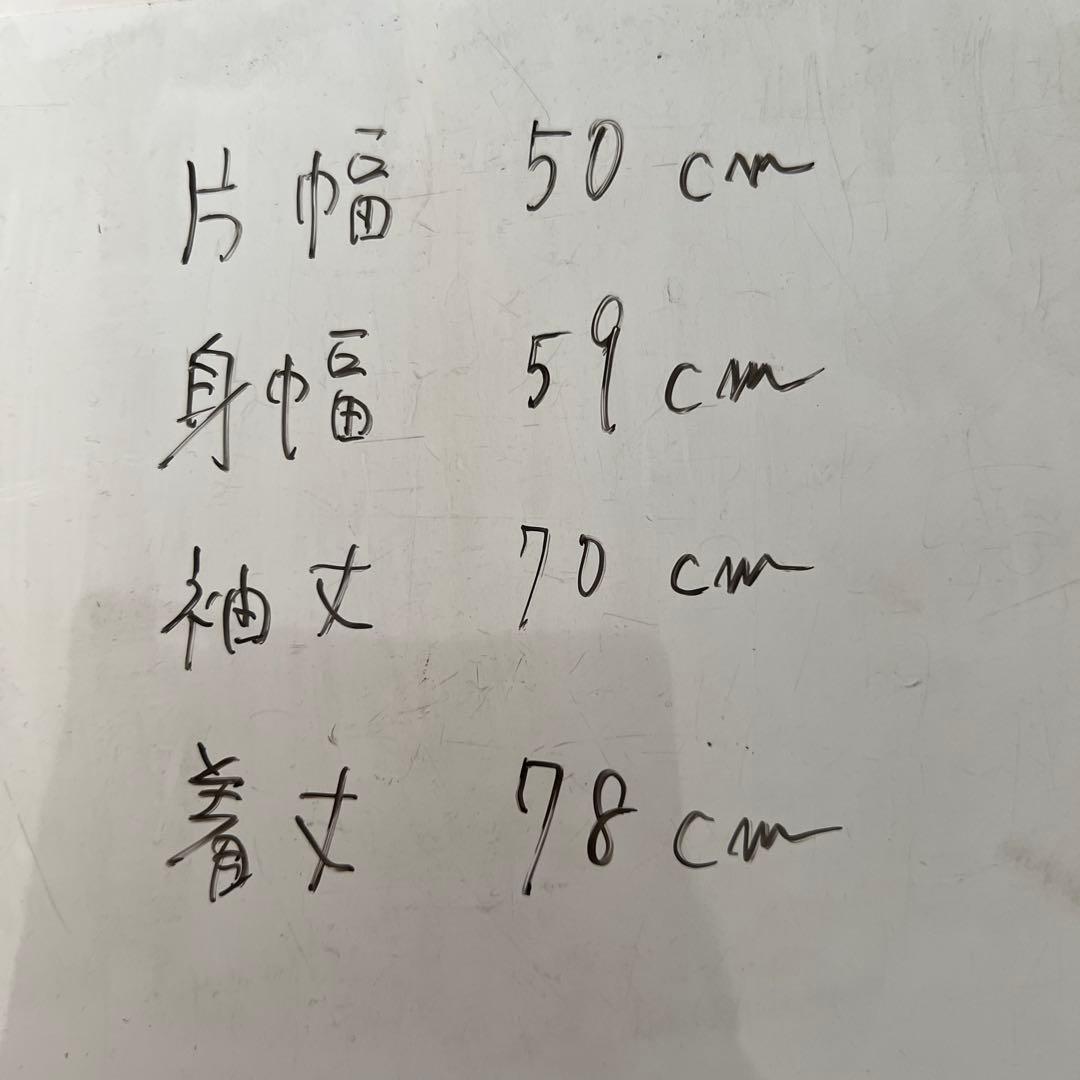 片幅 50cm
身幅 59cm
袖丈 70cm
着丈 78cm